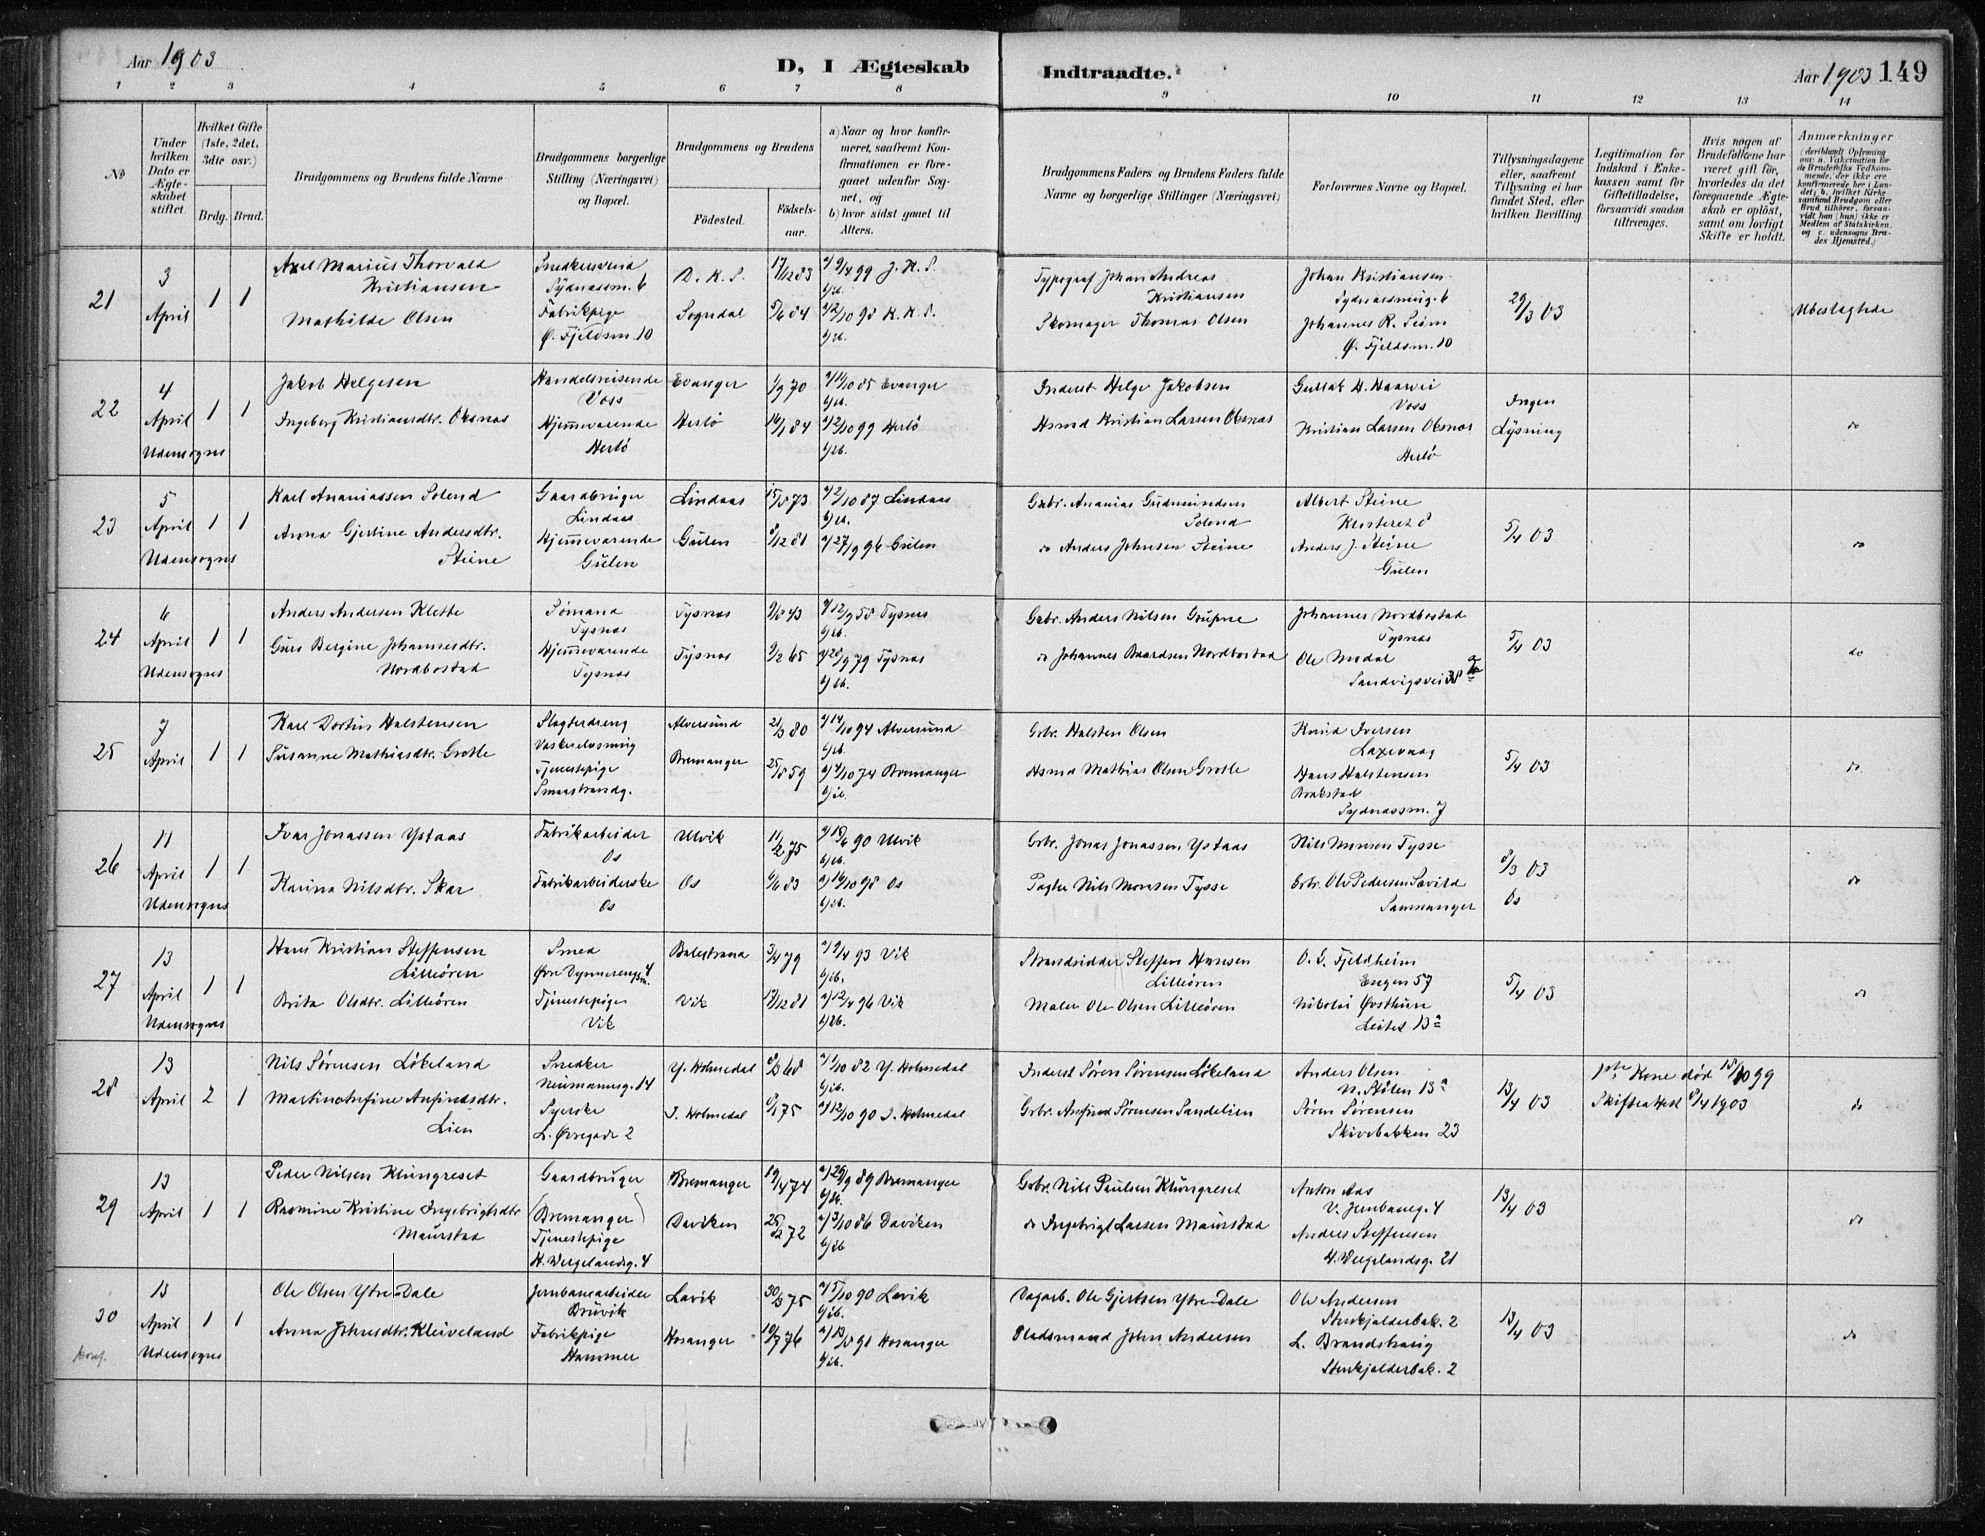 Aar 1903
D, I Ægteskab
Indtraadte.
Aar 1903 149
1 2 3 4 5 6 7 8 9 10 11 12 13 14
No
Under hvilken Dato er Ægteskabet stiftet.
Hvilket Gifte (1ste, 2det, 3die osv.)
Brdg. Brud.
Brudgommens og Brudens fulde Navne
Brudgommens borgerlige Stilling (Næringsvei) og Bopæl.
Brudgommens og Brudens
Födested.
Födselsaar.
a) Naar og hvor konfirmeret, saafremt Konfirmationen er foregaaet udenfor Sognet, og
b) hvor sidst gaaet til Alters.
Brudgommens Faders og Brudens Faders fulde Navne og borgerlige Stillinger (Næringsvei)
Forlovernes Navne og Bopæl.
Tillysningsdagene eller, saafremt Tillysning ei har fundet Sted, efter hvilken Bevilling.
Legitimation for Indskud i Enkekassen samt for Giftetilladelse, forsaavidt saadan tiltrænges.
Hvis nogen af Brudefolkene har været gift før, hvorledes da det foregaaende Ægteskab er oplöst, samt om lovligt Skifte er holdt.
Anmærkninger
(deriblandt Oplysning om: a. Vakcination for de Brudefolks Vedkommende, der ikke ere konfirmerede her i Landet; b. hvilket Kirkesamfund Brudgom eller Brud tilhörer, forsaavidt han (hun) ikke er Medlem af Statskirken, og c. udensogns Brudes Hjemsted.)
21
3 April
1 1
Axel Marius Thorvald Kristiansen
Snedkersvend Sydnæssm. 6
D. K. S. 17/12 83
a/ 9/4 99 J. K. S.
b/ ib.
Typograf Johan Andreas Kristiansen
Johan Kristiansen Sydnæssmug. 6
29/3 03
Ubeslægtede
Mathilde Olsen
Fabrikpige Ø. Fjeldsm. 10
Sogndal 5/6 84
a/ 2/10 98 K. K. S.
b/ ib.
Skomager Thomas Olsen
Johannes R. Seim Ø. Fjeldsm. 10
22
4 April Udensogns
1 1
Jakob Helgesen
Handelsreisende Voss
Evanger 1/9 70
a/ 11/10 85 Evanger
b/ ib.
Inderst Helge Jakobsen
Gullak H. Haarvei Voss
Ingen Lysning
do
Ingeborg Kristiansdtr. Oksnæs
Hjemmeværende Herlö
Herlö 14/1 84
a/ 2/10 99 Herlö
b/ ib.
Hsmd Kristian Larsen Oksnæs
Kristian Larsen Oksnæs Herlö
23
5 April Udensogns
1 1
Karl Ananiassen Solend
Gaardbruger Lindaas
Lindaas 15/5 73
a/ 2/10 87 Lindaas
b/ ib.
Gabr. Ananias Gudmundsen Solend
Albert Steine Klosteret 8
5/4 03
do
Anna Gjertine Andersdtr. Steine
Hjemmeværende Gulen
Gulen 8/12 81
a/ 27/9 96 Gulen
do Anders Johnsen Steine
Anders J. Steine Gulen
24
6 April Udensogns
1 1
Anders Andersen Klette
Sømand Tysnæs
Tysnæs 9/8 43
a/ 12/9 58 Tysnæs
b/ ib.
Gabr. Anders Nilsen
Johannes Nordbøstad Tysnæs
5/4 03
do
Guro Bergine Johannesdtr. Nordbøstad
Hjemmeværende Tysnæs
Tysnæs 9/2 65
a/ 28/9 79 Tysnæs
b/ ib.
do Johannes Baardsen Nordbøstad
Ole Modal Sandvigsvei 38 a
25
7 April
1 1
Karl Dortin Halstensen
Slagterdreng Vaskerelvsmug
Alversund 21/3 80
a/ 14/10 94 Alversund
b/ ib.
Grbr. Halsten Olsen
Knud Iversen Laxevaag
5/4 03
do
Susanne Mathiasdtr. Grotle
Tjenestepige Smaastrandg.
Bremanger 25/8 59
a/ 4/10 74 Bremanger
b/ ib.
Hsmd Mathias Olsen Grotle
Hans Halstensen Brakstad Sydnæssm. 7
26
11 April Udensogns
1 1
Ivar Jonassen Ystaas
Fabrikarbeider Os
Ulvik 11/2 75
a/ 15/6 90 Ulvik
b/ ib.
Grbr. Jonas Jonassen Ystaas
Nils Monsen Tysse
8/3 03 Os
do
Karina Nilsdtr. Skar
Fabrikarbeiderske Os
Os 6/6 83
a/ 16/10 98 Os
b/ ib.
Pagter Nils Monsen Tysse
Grbr. Ole Pedersen Samnanger
27
13 April Udensogns
1 1
Hans Kristian Steffensen Lilleören
Smed Øvre Dynnersgsm. 4
Balestrand 3/4 79
a/ 9/4 93 Vik
b/ ib.
Strandsidder Steffen Hansen Lilleören
O. G. Fjeldheim Engen 57
5/4 03
do
Brita Olsdtr. Lilleören
Tjenestepige Vik
Vik 17/12 81
a/ 12/4 96 Vik
b/ ib.
Maler Ole Olsen Lilleören
Nikolai Østhun Leitet 13 a
28
13 April
2 1
Nils Sørensen Løkeland
Snedker Neumannsg. 14
Y. Holmedal 8/3 68
a/ 1/10 82 Y. Holmedal
b/ ib.
Inderst Søren Sørensen Løkeland
Anders Olsen N. Stølen 13 a
13/4 03
1ste Kone död 15/10 99
Skifteattest 8/4 1903
do
Martina Anfinsdtr. Lien
Syerske L. Øvregade 2
I. Holmedal 8/1 75
a/ 12/10 90 I. Holmedal
Grbr. Anfind Sørensen Sandelien
Søren Sørensen Skivebakken 23
29
13 April
1 1
Peder Nilsen Klungreset
Gaardbruger (Bremanger)
Bremanger 19/4 74
a/ 29/9 89 Bremanger
b/ ib.
Grbr. Nils Paulsen Klungreset
Anton Aas V. Jernbaneg. 4
13/4 03
do
Rasmine Kristine Ingebrigtsdtr Maurstad
Tjenestepige H. Wergelandsg. 4
Daviken 25/2 72
a/ 3/10 86 Daviken
b/ ib
do Ingebrigt Larsen Maurstad
Anders Steffensen H. Wergelandsg. 21
30
konf.
13 April Udensogns
1 1
Ole Olsen Ytre-Dale
Jernbanearbeider Bruvik
Lavik 30/3 75
a/ 5/10 90 Lavik
b/ ib.
Dagarb. Ole Gjertsen Ytre-Dale
Ole Andersen Stenkjelderbak. 2
13/4 03
do
Anna Johnsdtr. Kleiveland
Fabrikpige Hammer
Hosanger 10/7 76
a/ 13/9 91 Hosanger
b/ ib.
Pladsmand John Andersen
L. Brandstveig Stenkjelderbak. 2